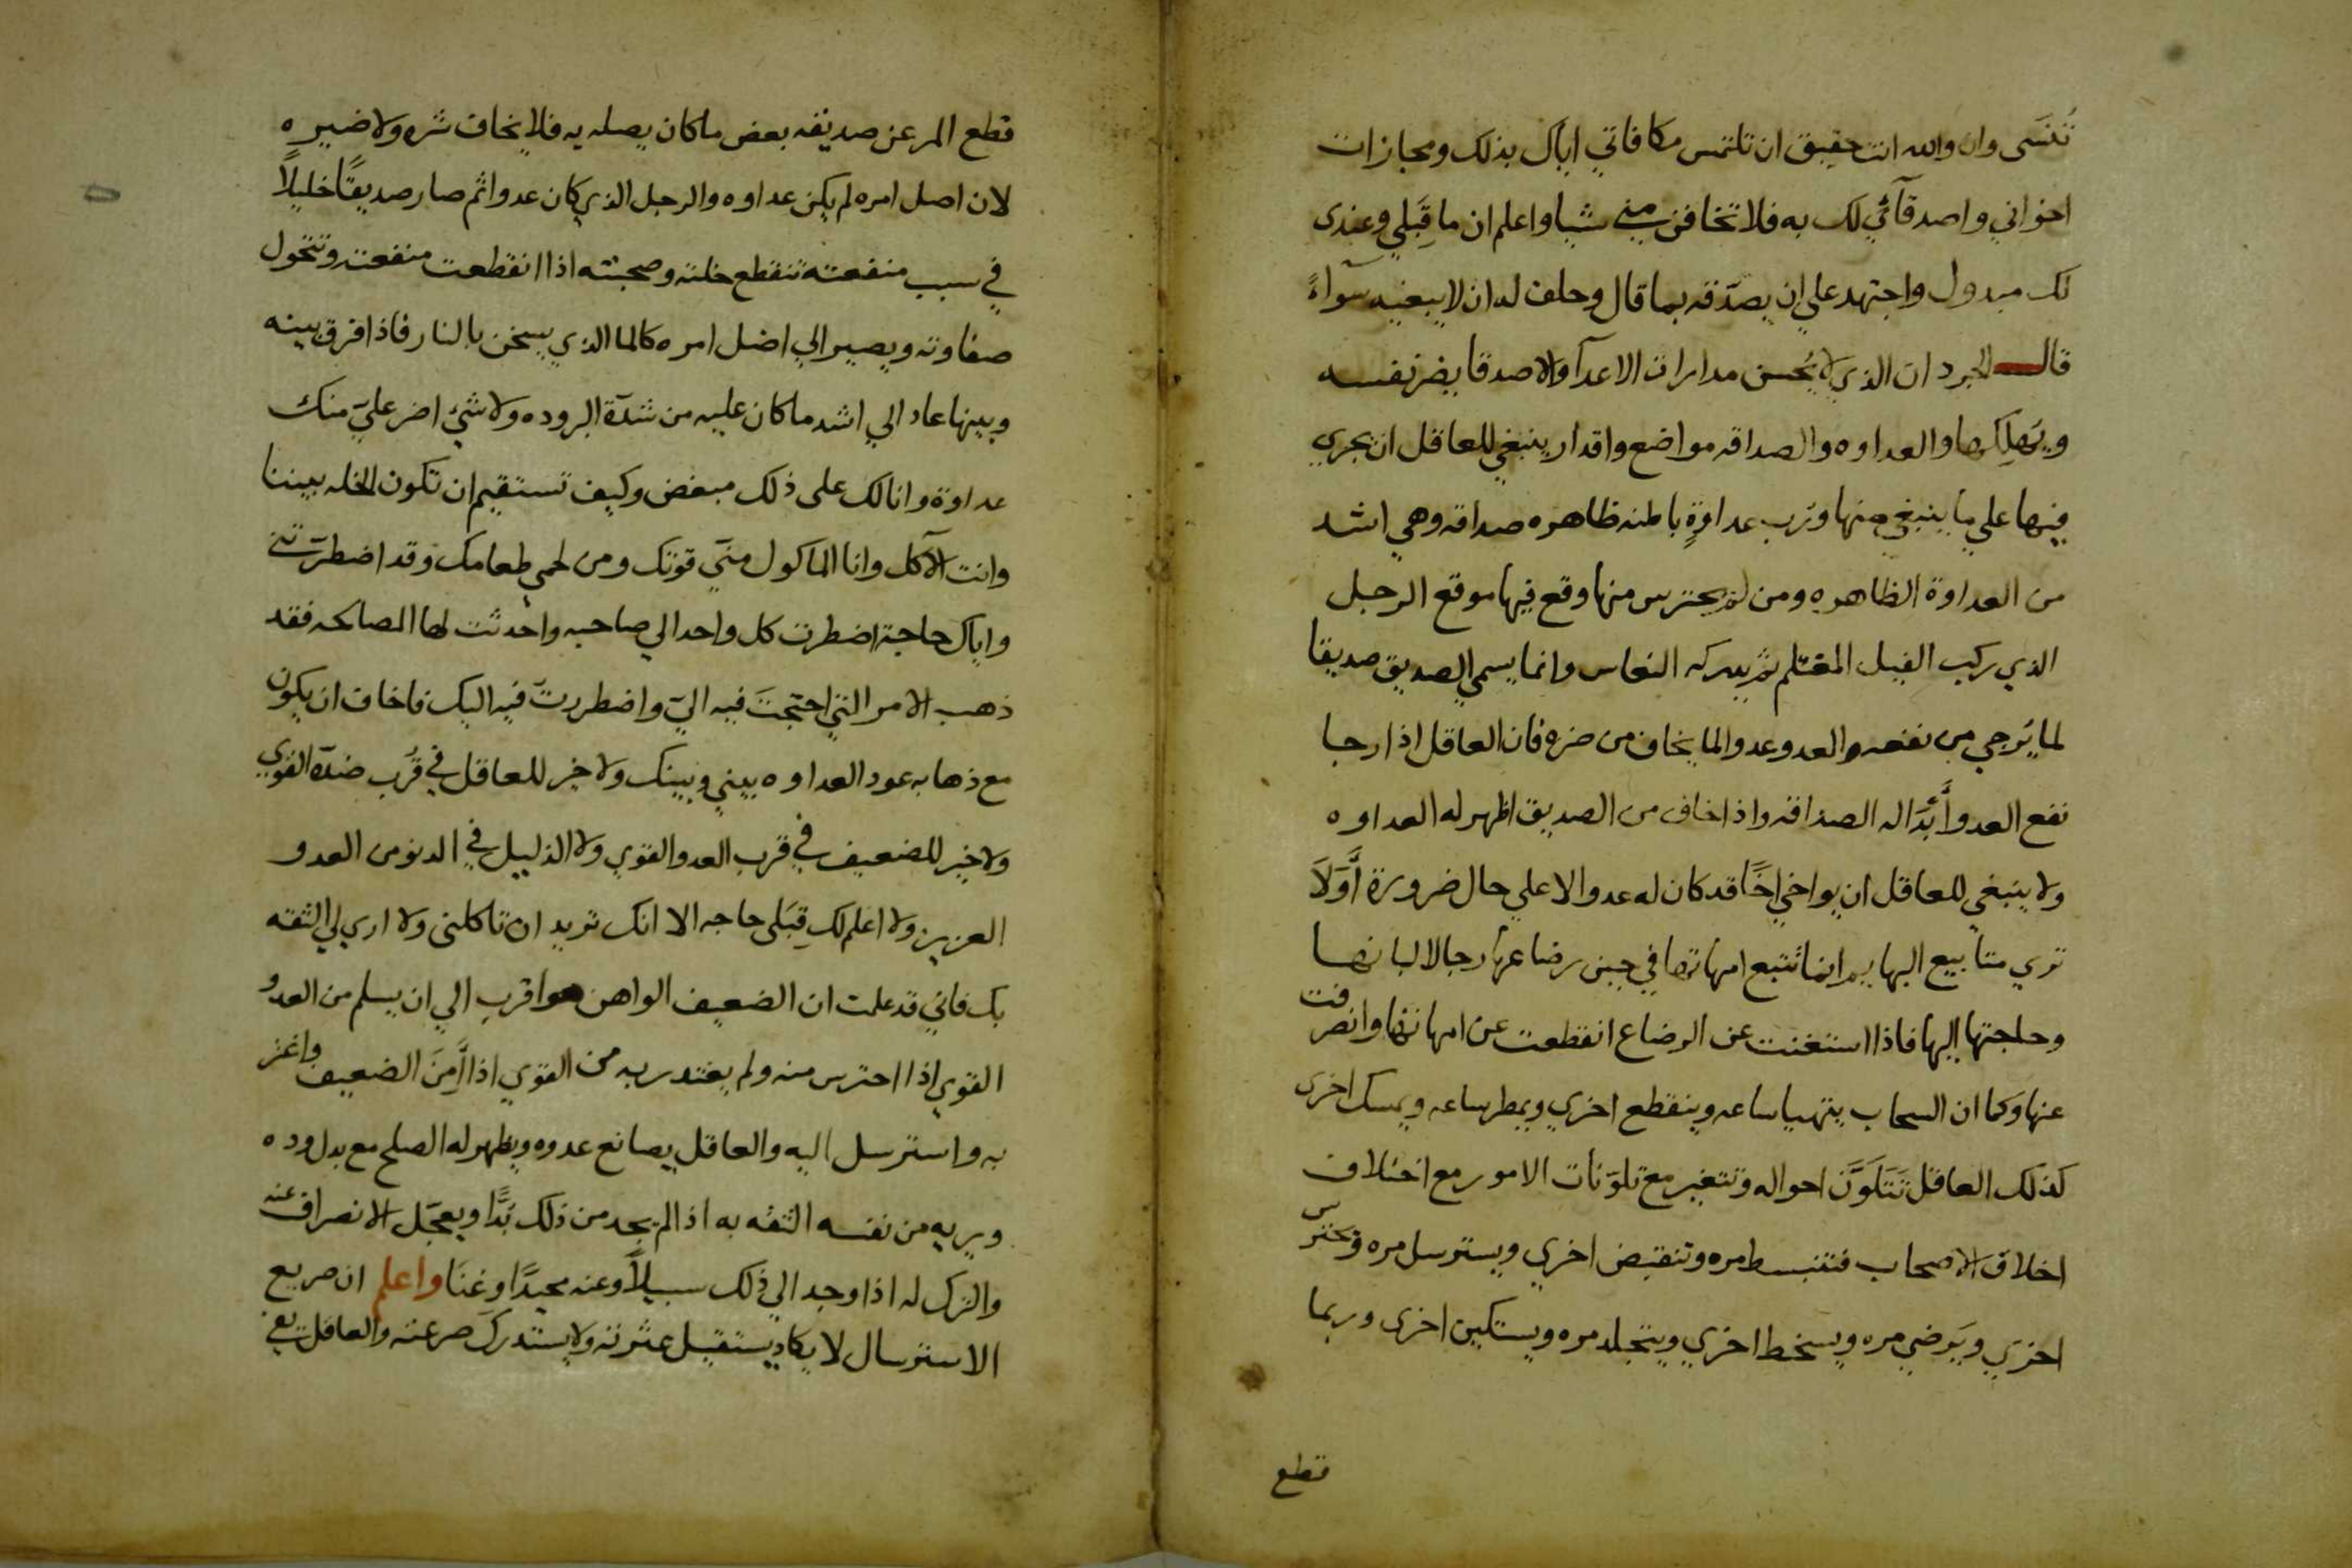 تُنسَى وان والله انت حقيق ان تلتمس مكافاتي اياك بذلك ومجازات
اخواني واصدقآئي لك به فلا تخافن مني شيا واعلم ان ما قِبَلي وعندى
لك مبدول واجتهد علي ان يصدّقه بما قال وحلف له ان لا يبغيه سوآءً
قال الجرد ان الذي لا يُحسن مدارات الاعدآ والاصدقا يضر نفسه
ويُهلِكها والعداوه والصداقه مواضع واقدار ينبغي للعاقل ان يجري
فيها علي ما ينبغي منها وُرب عداوةٍ باطنه ظاهره صداقه وهي اشد
من العداوة الظاهره ومن لم يحترس منها وقع فيها موقع الرجل
الذي ركب الفيل المغتلم ثم يدركه النعاس وانما يسمي الصديق صديقا
لما يُرجي من نفعه والعدو عدوا لما يخاف من ضره فان العاقل اذا رجا
نفع العدو أَبْدَا له الصداقه واذا خاف من الصديق اظهر له العداوه
ولا ينبغي للعاقل ان يواخي اخًا قد كان له عدوا الا علي حال ضرورة أَوَلَا
تري متابيع البهايم انما تتبع امهاتها في حين رضاعها رجا لالبانها
وحاجتها اليها فاذا استغنت عن الرضاع انقطعت عن امهاتها وانصرفت
عنها وكما ان السحاب يتهيا ساعه وينقطع اخري ويمطر ساعه ويمسك اخرى
كذلك العاقل تَتَلَوَّن احواله وتتغير مع تلوّنات الامور مع اختلاف
اخلاق الاصحاب فتنبسط مره وتنقبض اخري ويسترسل مره وتحترس
اخري ويَرضي مره ويسخط اخري ويتجلد مره ويستكين اخرى وربما
قطع
قطع المر عن صديقه بعض ما كان يصله به فلا يخاف شره ولا ضيره
لان اصل امره لم يكن عداوه والرجل الذي كان عدوا ثم صار صديقًا خليلًا
في سبب منفعته تنقطع خلته وصحبته اذا انقطعت منفعته وتتحول
صفاوته ويصير الي اصل امره كالما الذي يسخن بالنار فاذا فرق بينه
وبينها عاد الي اشد ما كان عليه من شدّة البروده ولا شيء اضر عليّ منك
عداوة وانا لك على ذلك مبغض وكيف تستقيم ان تكون الخله بيننا
وانت الآكل وانا الماكول منّي قوتك ومن لحمي طعامك وقد اضطرّتني
واياك حاجة اضطرت كل واحد الي صاحبه واحدثت لها المصالحه فقد
ذهب الامر التي احتجتَ فيه اليّ واضطررتّ فيه اليك فاخاف ان يكون
مع ذهابه عود العداوه بيني وبينك ولا خير للعاقل في قُرب ضدّه القوي
ولا خير للضعيف في قرب العدو القوي ولا الذليل في الدنو من العدو
العزيز ولا اعلم لك قِبَلى حاجه الا انك تريد ان تاكلني ولا اري لي الثقه
بك فاني قد علمت ان الضعيف الواهن هو اقرب الي ان يسلم من العدو
القوي اذا احترس منه ولم يغتدر به من القوي اذا أَمِنَ الضعيف واغتر
به واسترسل اليه والعاقل يصانع عدوه ويظهر له الصلح مع بدل وده
ويريه من نفسه الثقه به اذا لم يجد من ذلك بُدًّا ويعجّل الانصراف عنه
والترك له اذا وجد الي ذلك سبيلًا وعنه محيدًا وغِنَا واعلم ان صريع
الاسترسال لا يكاد يستقيل عثرته ولا يستدرك صرعته والعاقل يفي